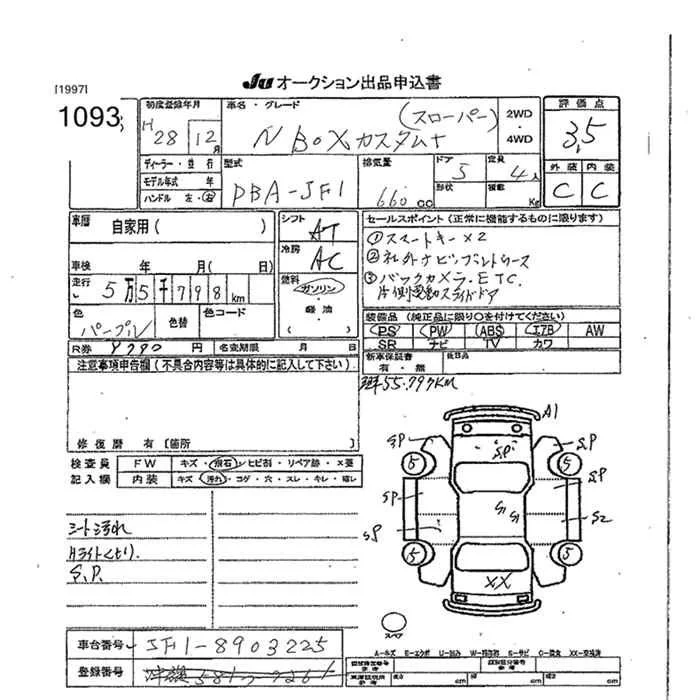 JU オークション出品申込書
[1997]
1093
初度登録年月
H 28 12月
ディーラー・並行
モデル年式 年
ハンドル 左・右
車名・グレード
N BOXカスタム (スローパー)
2WD・4WD
型式
DBA-JF1
排気量
660 cc
ドア
5
形状
定員
4人
積載
Kg
評価点
3.5
外装 内装
C C
車歴
自家用( )
車検 年 月( 日)
走行
5万5千798km
色
パープル
色替
色コード
シフト
AT
冷房
AC
燃料
ガソリン
軽油
( )
セールスポイント(正常に機能するものに限ります)
①スマートキー×2
②社外ナビ・
③バックカメラ.ETC.
片側電動スライドドア
装備品(純正品に限り〇を付けてください)
PS PW ABS エアB AW
SR ナビ TV カワ
新車保証書
有・無
後日品
R券 ¥790 円
名変期限 月 日
注意事項申告欄(不具合内容等は具体的に記入して下さい)
修復歴 有〔箇所 〕
55.793KM
検査員
記入欄
FW キズ・飛石・ヒビ割・リペア跡・×要
内装 キズ・汚れ・コゲ・穴・スレ・キレ・
シート汚れ
ライトくもり.
S.P.
A1
S.P
S.P
S.P
S.P
SP
SP
S1
S1
S2
XX
5
5
5
5
スペア
車台番号 JF1-8903225
登録番号
cm cm cm